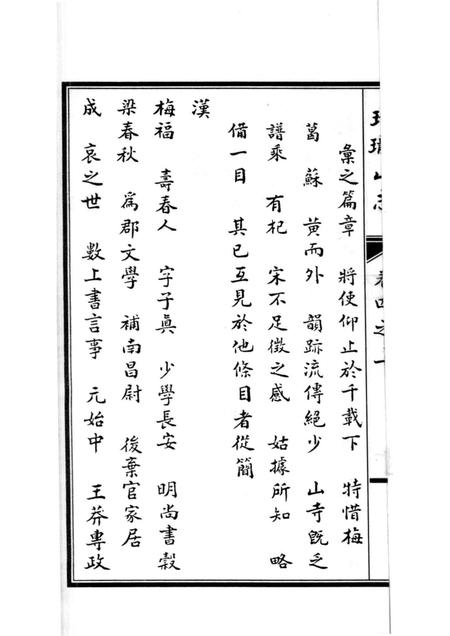 彙之篇章 將使仰止於千載下 特惜梅
葛 蘇 黄而外 韻跡流傳絕少 山寺既乏
譜乘 有杞 宋不足徵之感 姑據所知 略
備一目 其已互見於他條目者從簡
漢
梅福 壽春人 字子眞 少學長安 明尚書榖
梁春秋 爲郡文學 補南昌尉 後棄官家居
成 哀之世 數上書言事 元始中 王莽專政